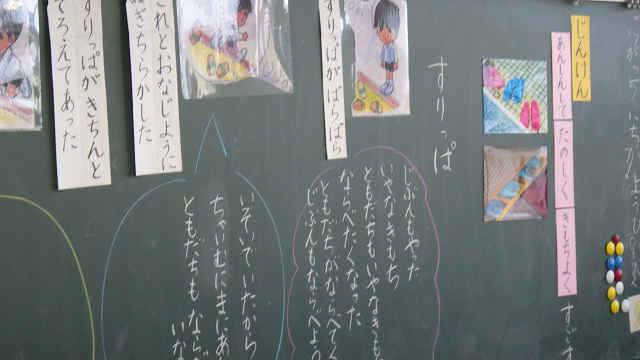 じんけん
あんしんして
たのしく
きもちよく
すりっぱ
すりっぱがばらばら
じぶんもやった
いやなきもち
ともだちもいやなきも
ならべたくなった
ともだちがならべてく
じぶんもならべよう
これとおなじように
ぬぎちらかした
いそいでいたから
ちゃいむにまにあ
ともだちもならべ
いな
すりっぱがきちんと
そろえてあった